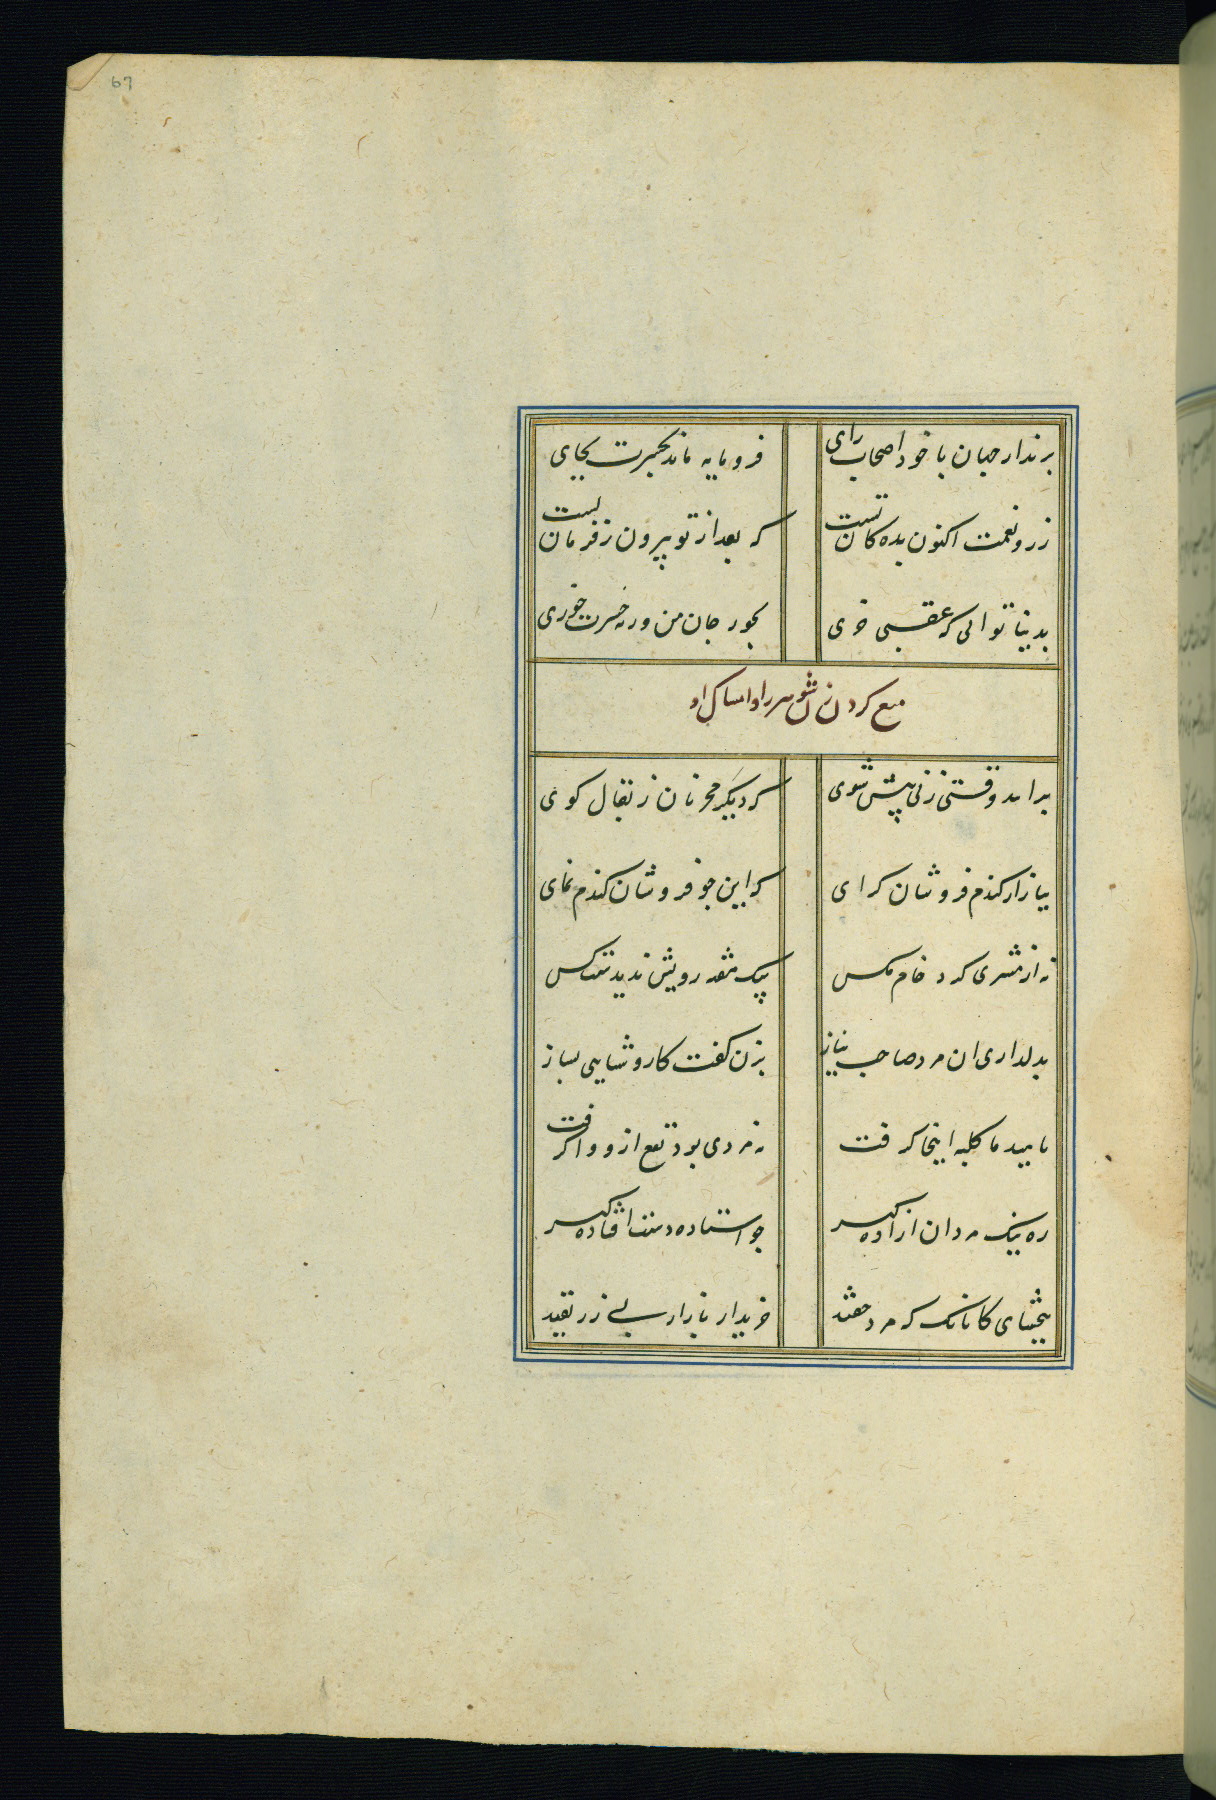 67
برند از جهان با خود اصحاب رای فرومایه ماند بحسرت بجای
زر و نعمت اکنون بده کان تست که بعد از تو بیرون ز فرمان تست
بدنیا توانی که عقبی خری بخور جان من ورنه حسرت خوری
منع کردن زن شوهر را و امساک او
بزارید وقتی زنی پیش شوی که دیگر مخر نان ز بقال کوی
ببازار کندم فروشان کرای که این جو فروشان کندم نمای
نه از مشتری کز دحام مکس بیک هفته رویش ندیدست کس
بدلداری ان مرد صاحب نیاز بزن کفت کای روشنایی بساز
بامید ما کلبه اینجا کرفت نه مردی بود نفع ازو وا کرفت
ره نیک مردان ازاده کیر چو استاده دست افتاده کیر
ببخشای کانانک مرد حقند خریدار بازار بی رونقند